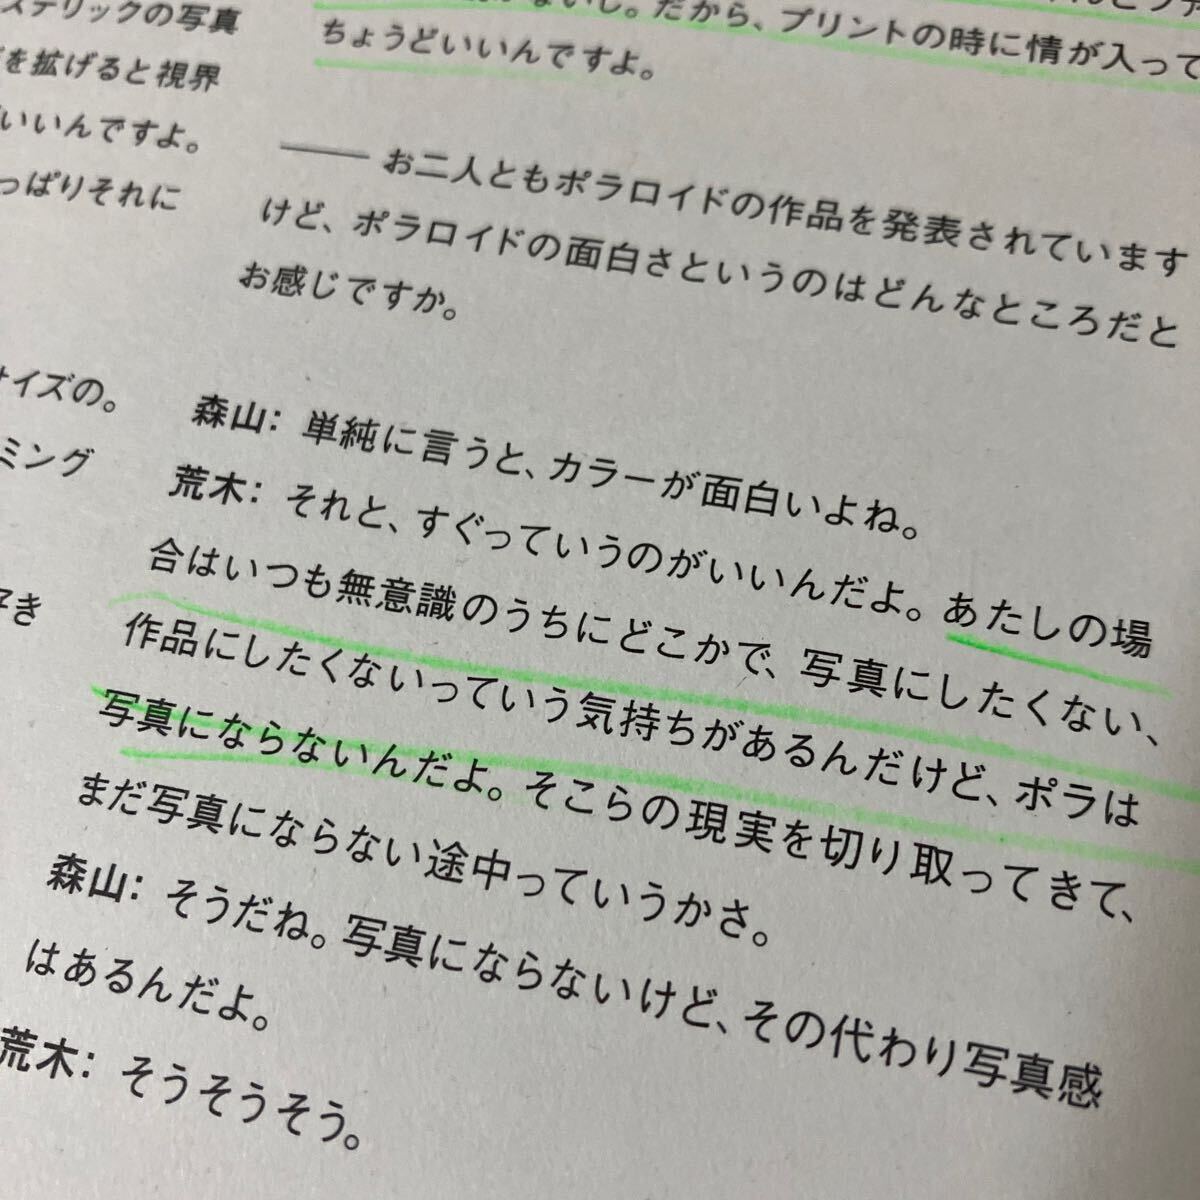 ステリックの写真
を拡げると視界
いいんですよ。
っぱりそれに
イズの。
ミング
好き
ないし。だから、プリントの時に情が入って
ちょうどいいんですよ。
—— お二人ともポラロイドの作品を発表されています
けど、ポラロイドの面白さというのはどんなところだと
お感じですか。
森山：単純に言うと、カラーが面白いよね。
荒木：それと、すぐっていうのがいいんだよ。あたしの場
合はいつも無意識のうちにどこかで、写真にしたくない、
作品にしたくないっていう気持ちがあるんだけど、ポラは
写真にならないんだよ。そこらの現実を切り取ってきて、
まだ写真にならない途中っていうかさ。
森山：そうだね。写真にならないけど、その代わり写真感
はあるんだよ。
荒木：そうそうそう。